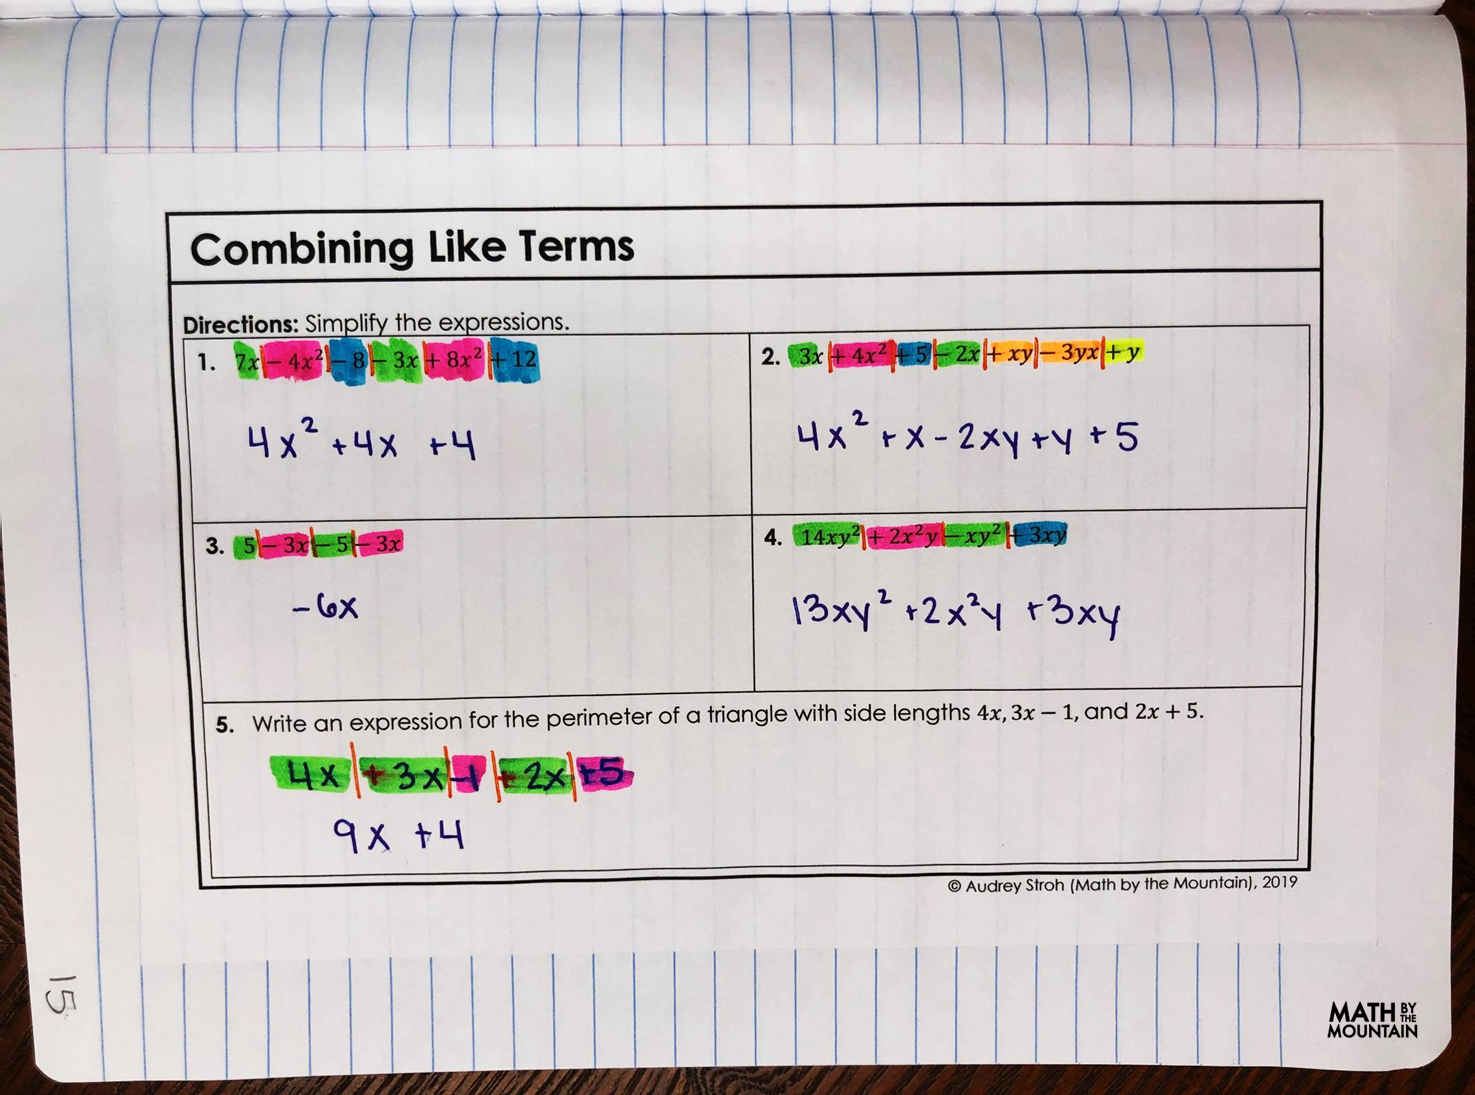 Combining Like Terms
Directions: Simplify the expressions.
1. 7x − 4x² − 8 − 3x + 8x² + 12
4x² + 4x + 4
2. 3x + 4x² + 5 − 2x + xy − 3yx + y
4x² + x - 2xy + y + 5
3. 5 − 3x − 5 − 3x
-6x
4. 14xy² + 2x²y − xy² + 3xy
13xy² + 2x²y + 3xy
5. Write an expression for the perimeter of a triangle with side lengths 4x, 3x − 1, and 2x + 5.
4x + 3x - 1 + 2x + 5
9x + 4
© Audrey Stroh (Math by the Mountain), 2019
15
MATH BY THE
MOUNTAIN